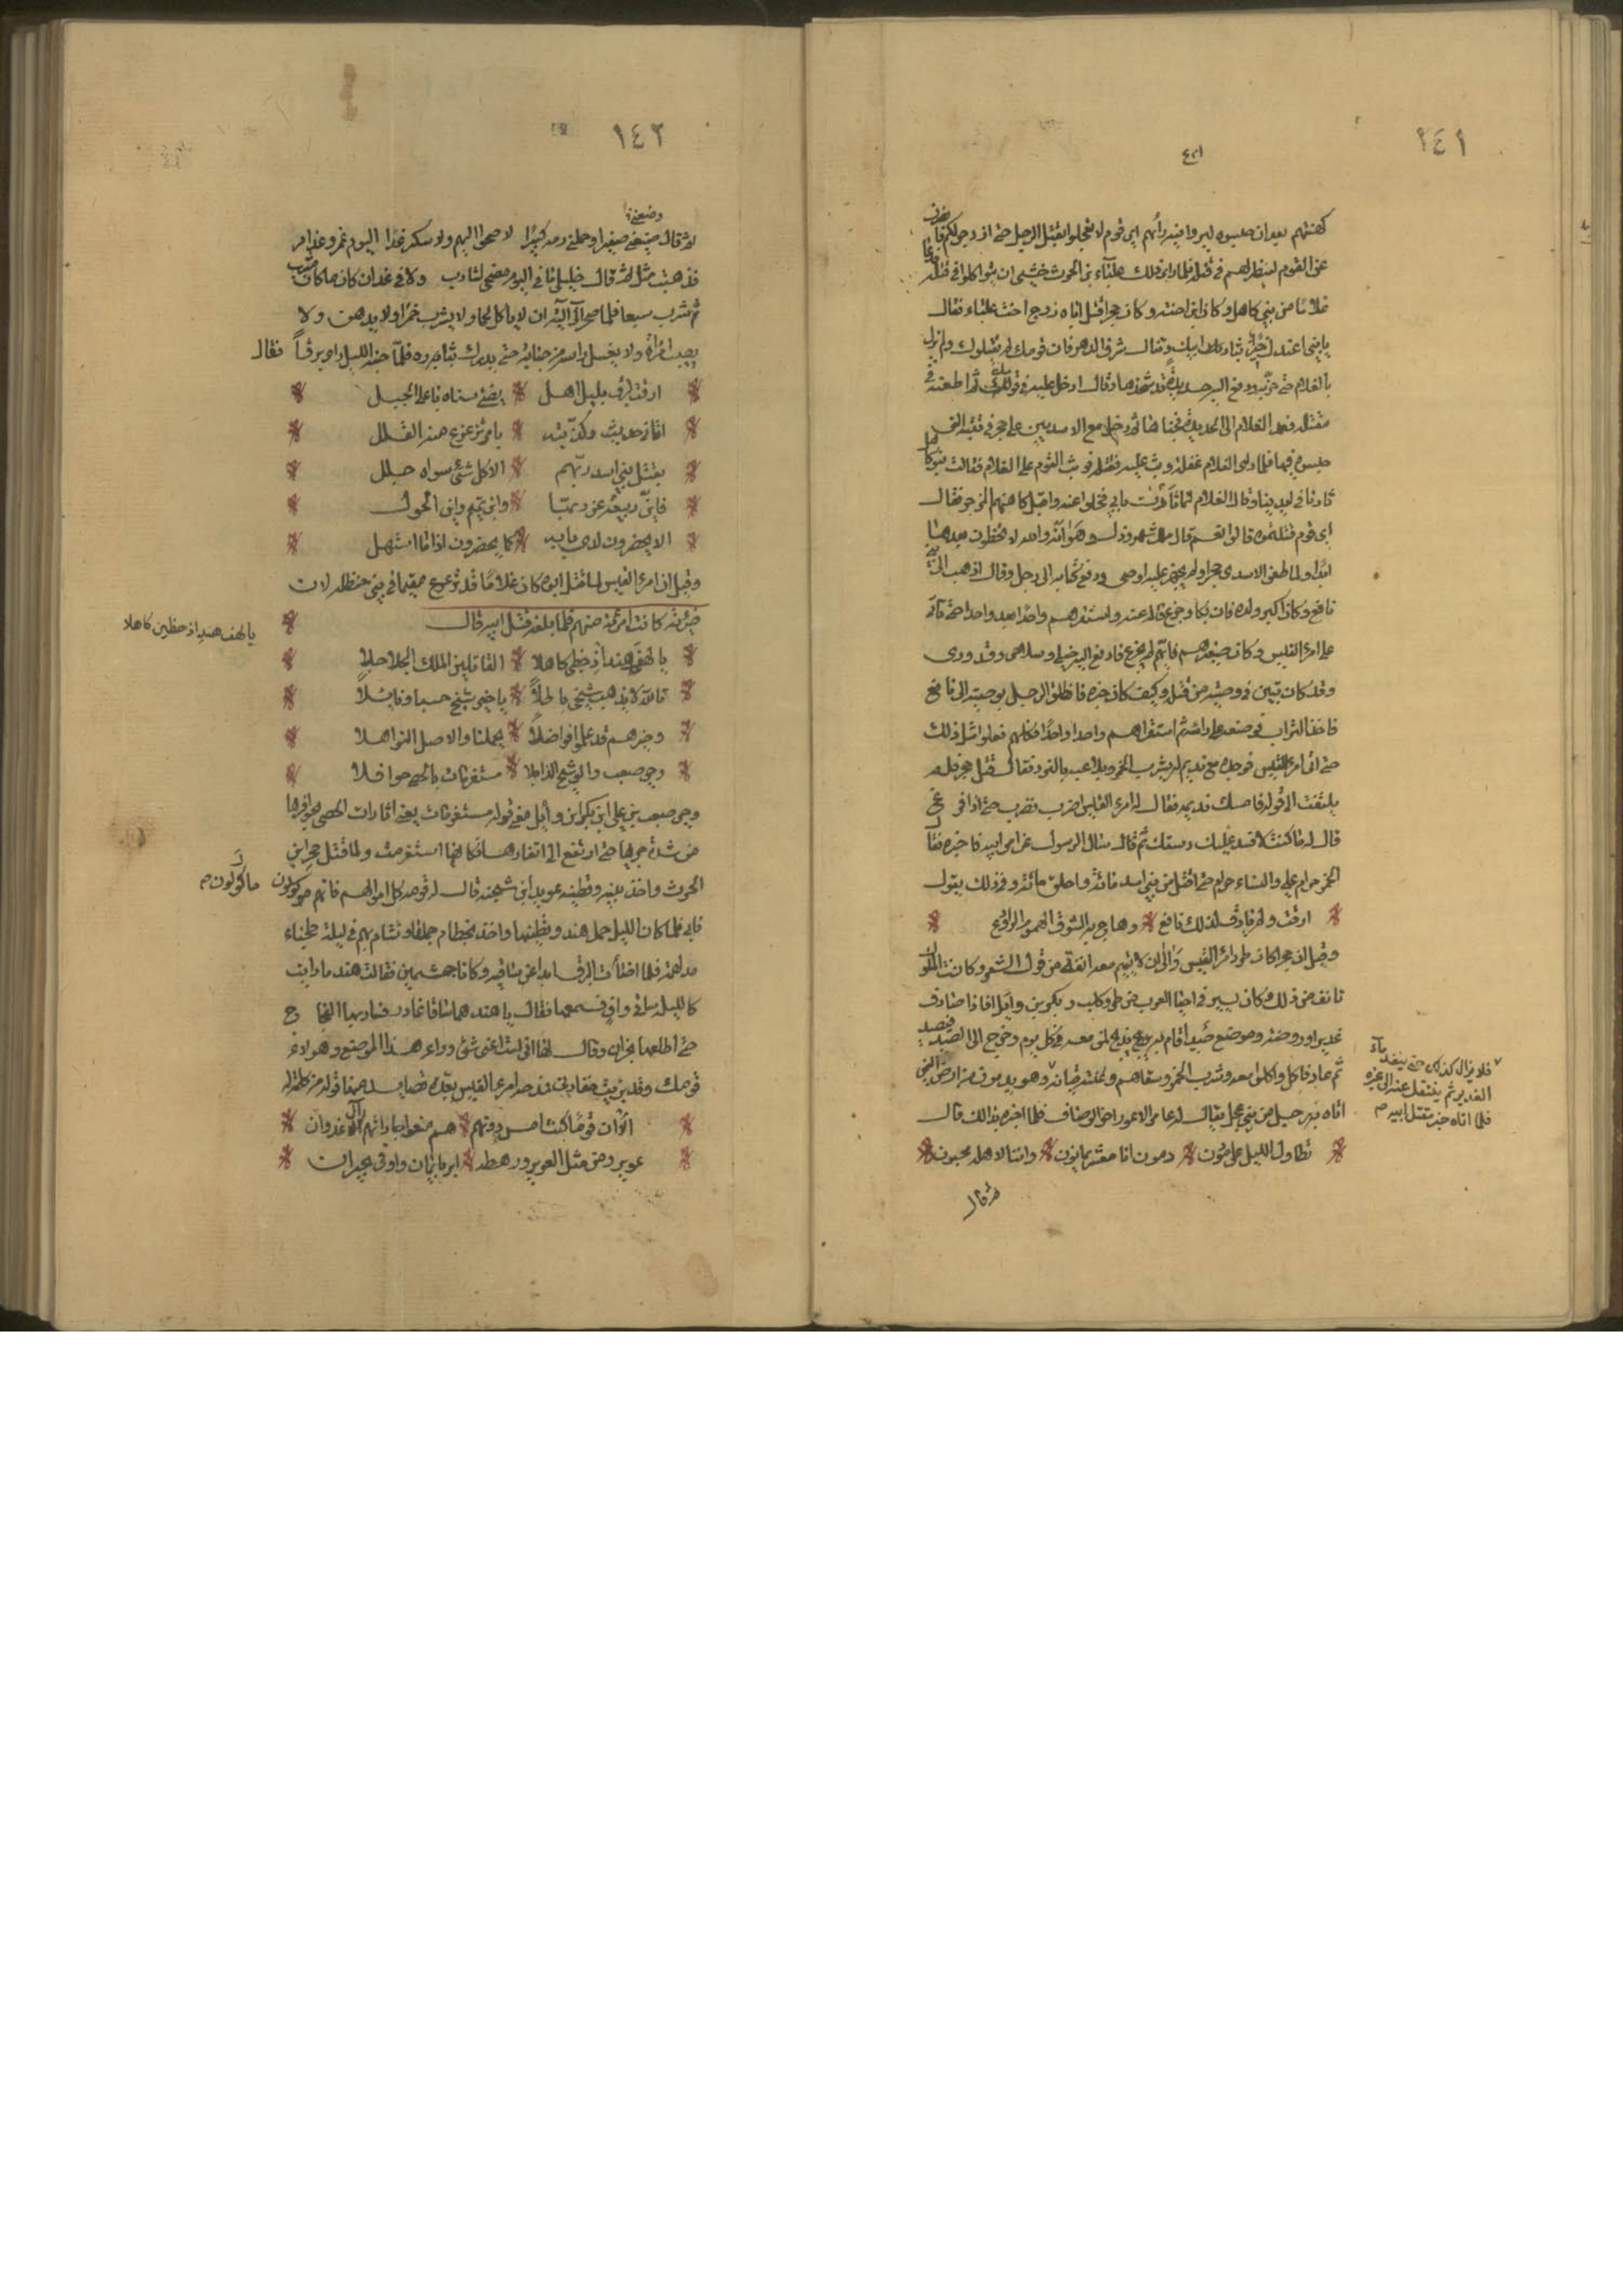 ١٤١
كهنتهم بعد ان حبسوه ليروا فيه رأيهم اي قوم لا تعجلوا بقتل الرجل حتى ازجر لكم فانصرف
عن القوم لينظر لهم في قتله فلما رأى ذلك علباء بن الحرث خشي ان يتواكلوا في قتله فدعا
غلاما من بني كاهل وكان ابن اخته وكان حجر قتل اباه زوج اخت علباء فقال
يا بني اعندك خير فتثأر بابيك وتنال شرف الدهر فان قومك لن يقتلوك ولم يزل
بالغلام حتى حربه ودفع اليه حديدة قد شحذها وقال ادخل عليه مع قومك ثم اطعنه في
مقتله فعمد الغلام الى الحديدة فخباها ثم دخل مع الاسديين على حجر في قبته التي
حبسوه فيها فلما رأى الغلام غفلة وثب عليه فقتله فوثب القوم على الغلام فقالت بنو كاهل
ثارنا في ايدينا وقال الغلام انما ثأرت بابي فخلوا عنه واقبل كاهنهم المزدجر فقال
اي قوم قتلتموه قالوا نعم قال ملك شهر وذل دهر اما والله لا تحظون بعدها
ابدا ولما طعن الاسدي حجرا ولم يجهز عليه اوصى ودفع كتابه الى رجل وقال اذهب الى ابني
نافع وكان اكبر ولده فان بكا وجزع فاله عنه واستقرهم واحدا بعد واحد حتى تأتي
على امرئ القيس وكان اصغرهم فايهم لم يجزع فادفع اليه خيلي وسلاحي وقدوري
وقد كان بين في وصيته من قتله وكيف كان خبره فانطلق الرجل بوصيته الى نافع
فاخذ التراب فوضعه على رأسه ثم استقراهم واحدا واحدا فكلهم فعلوا مثل ذلك
حتى اتى امرئ القيس فوجده مع نديم له يشرب الخمر ويلاعبه بالنرد فقال قتل حجر فلم
يلتفت الى قوله فامسك نديمه فقال له امرئ القيس اضرب فضرب حتى اذا فرغ
قال له ما كنت لافسد عليك دستك ثم قال سأل الرسول عن امر ابيه فاخبره فقال
الخمر حرام علي والنساء حرام حتى اقتل من بني اسد مائة واطلق مائة وفي ذلك يقول
ارقت ولم يأرق لذلك نافع * وهاج به الشوق الهموم الروائع
وقيل ان حجرا كان طرد امرئ القيس وآلى ان لا يقيم معه انفة من قول الشعر وكانت الملوك
تانف من ذلك وكان يسير في احياء العرب من طي وكلب وبكر بن وايل فاذا صادف
غديرا وروضة وموضع صيد اقام به يذبح لمن معه في كل يوم وخرج الى الصيد فيصيد
ثم عاد فاكل واكلوا معه وشرب الخمر وسقاهم وغنته قيانه وهو بدمون من ارض اليمن
اتاه به رجل من بني عجل يقال له عامر الاعور اخو الوصاف فلما اخبره بذلك قال
تطاول الليل على دمون * دمون انا معشر يمانون * واننا لاهلنا محبون
فلا يزال كذلك حتى ينفد ماء
الغدير ثم ينتقل عنه الى غيره
فلما اتاه خبر مقتل ابيه
ثم قال
١٤٢
ثم قال ضيعني صغيرا وحملني دمه كبيرا لا صحو اليوم ولا سكر غدا اليوم خمر وغدا امر
فذهبت مثلا ثم قال خليلي ما في اليوم مصحى لشارب ولا في غد اذ كان ما كان مشرب
ثم شرب سبعا فلما صحا آلى ان لا ياكل لحما ولا يشرب خمرا ولا يدهن ولا
يصيب امرأة ولا يغسل راسه من جنابة حتى يدرك بثاره فلما جنه الليل رأى برقا فقال
ارقت لبرق بليل اهل * يضئ سناه باعلى الجبل
اتاني حديث وكذبته * بامر تزعزع منه القلل
بقتل بني اسد ربهم * الا كل شئ سواه جلل
فاين ربيعة عن ربها * واين تميم واين الخول
الا يحضرون لدى بابه * كما يحضرون اذا ما استهل
وقيل ان امرئ القيس لما قتل ابوه كان غلاما قد ترعرع مقيما في بني حنظلة لان
ظئره كانت امرئة منهم فلما بلغه قتل ابيه قال
يا لهف هند اذ خطين كاهلا * القاتلين الملك الحلاحلا
تالله لا يذهب شيخي باطلا * يا خير شيخ حسبا ونائلا
وخيرهم قد علموا فواضلا * يحملننا والاسل النواهلا
وحي صعب والوشيج الذابلا * مستثفرات بالحصى جوافلا
وحي صعب بن علي ابن بكر ابن وايل معنى قوله مستثفرات يعني اثارات الحصى بحوافرها
من شدة جريها حتى ارتفع الى اثفارها فكانها استثفرت ولما قتل حجر ابن
الحرث واخذ بنيه وقطينه عوير ابن شجنة قال له قومه كل اموالهم فانهم ماكولون
فابى فلما كان الليل حمل هند وقطينها واخذ بخطام جملها وتشام بهم في ليلة طخياء
مدلهمة فلما اضاءت البرق ابدا عن ساقيه وكانا حمشين فقالت هند ما رايت
كالليلة ساق واف فسمعها فقال يا هند هما ساقا غادر فساربها النجاح
حتى اطلعها نجران وقال لها اني لست اغني شئ وراء هذا الموضع وهولاء
قومك وقد برئت خفارتي فمدحه امرئ القيس بعدة قصايد منها قوله من كلمة له
الا ان قوما كنتم امس دونهم * هم منعوا جاراتهم آل غدران
عوير ومن مثل العوير ورهطه * ابر بايمان واوفى بجيران
يا لهف هند اذ خطين كاهلا
ماكولون